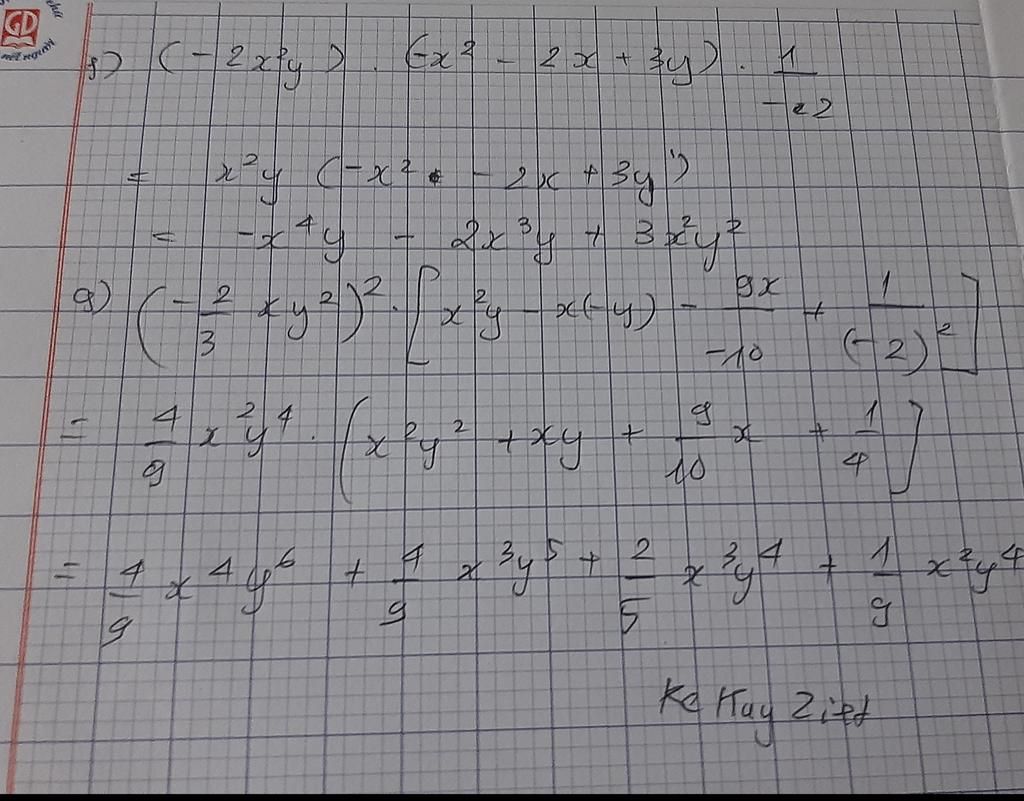 GD
f) (-2x²y) . (-x² - 2x + 3y) . 1/-2
= x²y (-x² - 2x + 3y)
= -x⁴y - 2x³y + 3x²y²
g) (-2/3 xy²)² . [x²y - x(-y) - 9x/-10 + 1/(-2)²]
= 4/9 x²y⁴ . (x²y² + xy + 9/10 x + 1/4]
= 4/9 x⁴y⁶ + 4/9 x³y⁵ + 2/5 x³y⁴ + 1/9 x²y⁴